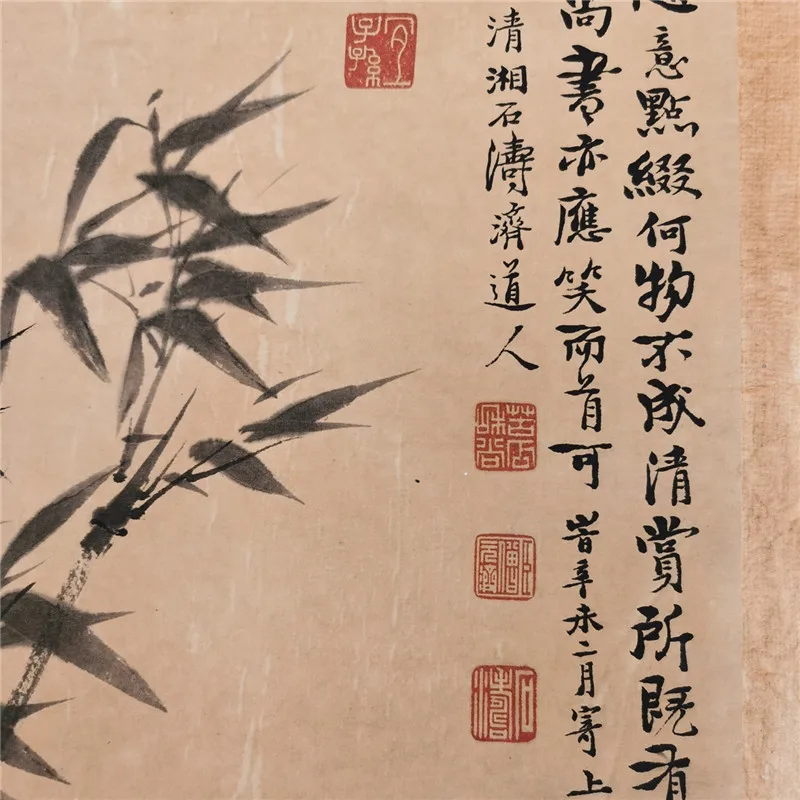 意點綴何物不成清賞所既有
尚書亦應笑而首可 旹辛未二月寄上
清湘石濤濟道人
苦瓜和尚
石濤